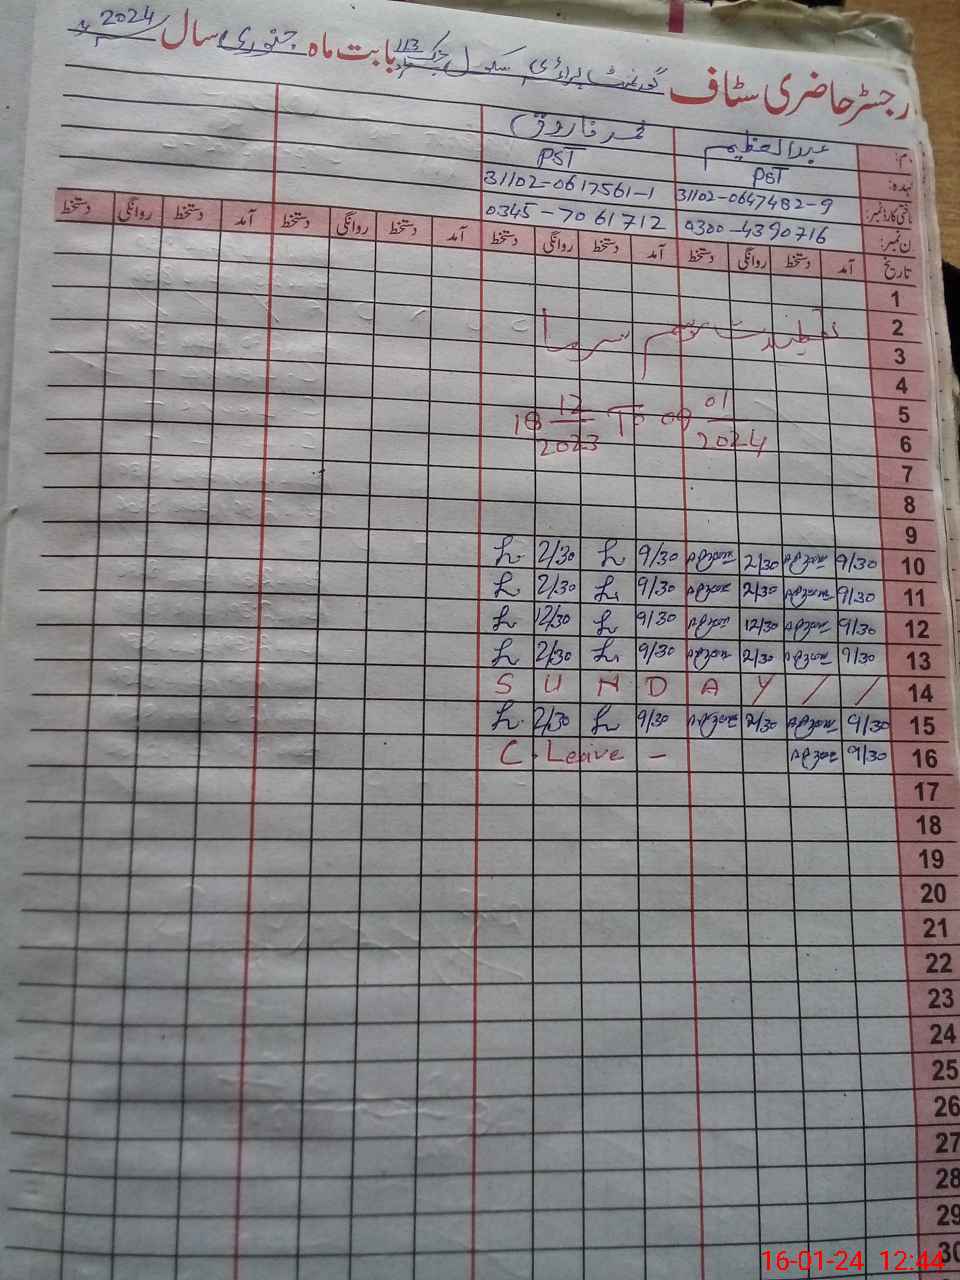 رجسٹر حاضری سٹاف گورنمنٹ پرائمری سکول چک 113 بابت ماہ جنوری سال 2024ء
نام: عبدالعظیم محمد فاروق
عہدہ: PST PST
شناختی کارڈ نمبر: 31102-0647482-9 31102-0617561-1
فون نمبر: 0300-4390716 0345-7061712
تاریخ آمد دستخط روانگی دستخط آمد دستخط روانگی دستخط آمد دستخط روانگی دستخط آمد دستخط روانگی دستخط
1
2 تعطیلات موسم سرما
3
4
5 18 12 To 09 01
6 2023 2024
7
8
9
10 9/30 2/30 9/30 2/30
11 9/30 2/30 9/30 2/30
12 9/30 12/30 9/30 12/30
13 9/30 2/30 9/30 2/30
14 S U N D A Y / /
15 9/30 2/30 9/30 2/30
16 9/30 C. Leave –
17
18
19
20
21
22
23
24
25
26
27
28
29
30
16-01-24 12:44